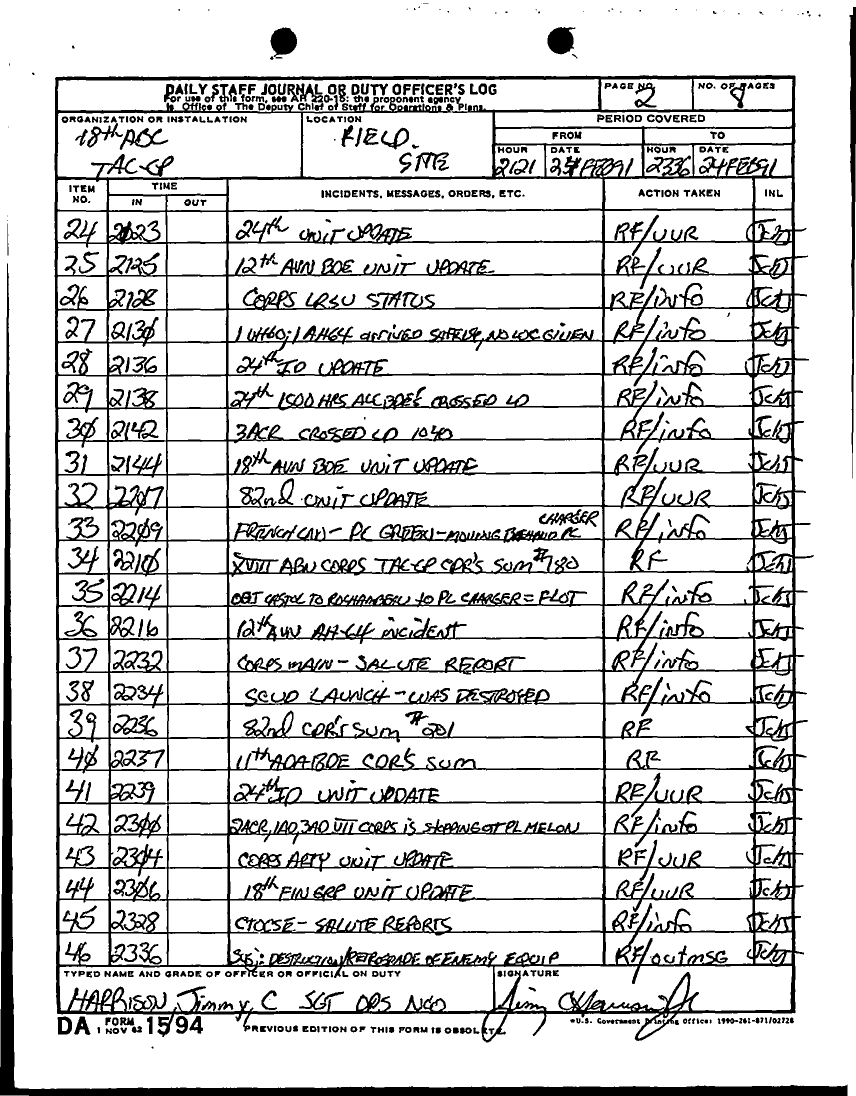 DAILY STAFF JOURNAL OR DUTY OFFICER'S LOG
For use of this form, see AR 220-15: the proponent agency
is Office of The Deputy Chief of Staff for Operations & Plans.
PAGE NO. 2
NO. OF PAGES 8
ORGANIZATION OR INSTALLATION
18th ABC
TAC-CP
LOCATION
FIELD
SITE
PERIOD COVERED
FROM TO
HOUR DATE HOUR DATE
2121 24FEB91 2336 24FEB91
ITEM NO. TIME IN OUT INCIDENTS, MESSAGES, ORDERS, ETC. ACTION TAKEN INL
24 2123 24th UNIT UPDATE RF/UUR
25 2125 12th AVN BDE UNIT UPDATE RF/UUR
26 2128 CORPS LRSU STATUS RF/info
27 2130 1 UH60; 1 AH64 arrived SAFELY, NO LOC GIVEN RF/info
28 2136 24th ID UPDATE RF/info
29 2138 24th 1500 HRS ALL BDE'S CROSSED LD RF/info
30 2142 3ACR CROSSED LD 1040 RF/info
31 2144 18th AVN BDE UNIT UPDATE RF/UUR
32 2207 82nd UNIT UPDATE RF/UUR
33 2209 FRENCH - MOVING PL CHARGER RF/info
34 2210 XVIII ABN CORPS TAC-CP CDR'S SUM #780 RF
35 2214 OBJ TO ROCHAMBEAU to PL CHARGER = FLOT RF/info
36 2216 12th AVN AH-64 incident RF/info
37 2232 CORPS MAIN - SALUTE REPORT RF/info
38 2234 SCUD LAUNCH - WAS DESTROYED RF/info
39 2236 82nd CDR'S SUM #201 RF
40 2237 11th ADA BDE CDR'S SUM RF
41 2239 24th ID UNIT UPDATE RF/UUR
42 2300 2ACR, 1AD, 3AD VII CORPS is STOPPING AT PL MELON RF/info
43 2304 CORPS ARTY UNIT UPDATE RF/UUR
44 2306 18th FIN GRP UNIT UPDATE RF/UUR
45 2328 CTOCSE - SALUTE REPORTS RF/info
46 2336 DESTRUCTION/RETROGRADE OF ENEMY EQUIP RF/outmSG
TYPED NAME AND GRADE OF OFFICER OR OFFICIAL ON DUTY
HARRISON, Jimmy, C SGT OPS NCO
SIGNATURE
DA FORM 1594
1 NOV 62
PREVIOUS EDITION OF THIS FORM IS OBSOLETE.
*U.S. Government Printing Office: 1990-261-871/02728